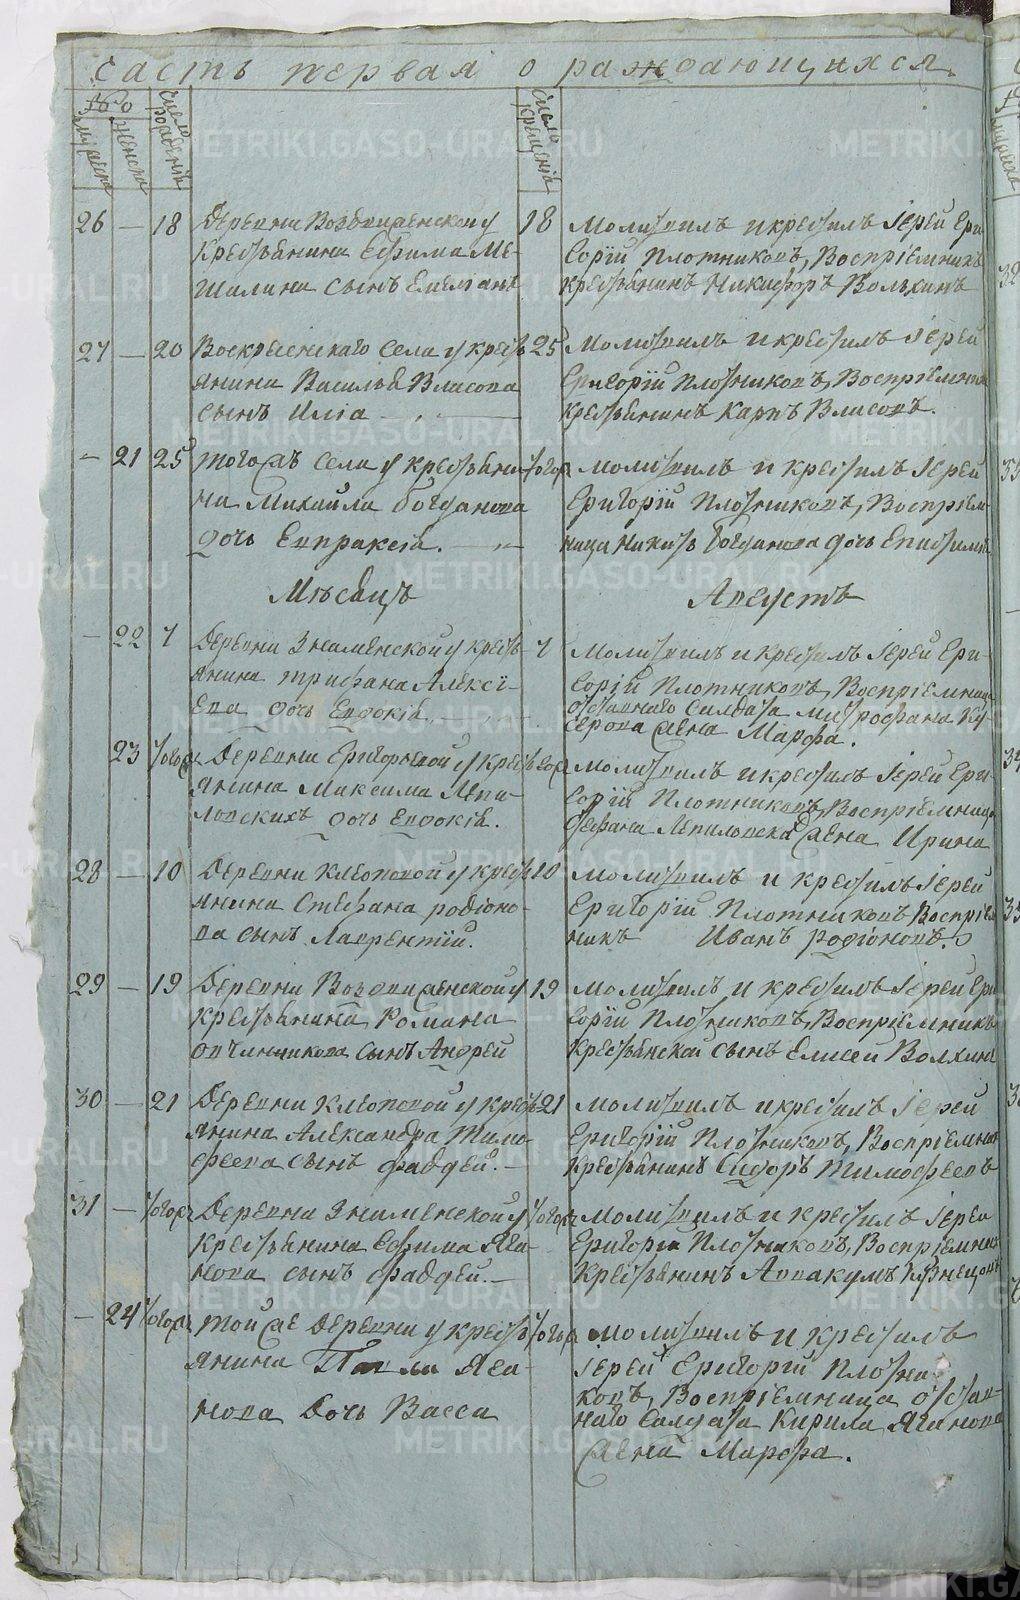 часть первая о раждающихся.
Число
мужеска
женска
число рожденiя
число крещенiя
26 — 18 Деревни Воздвиженской у
крестьянина Ефима Ме-
шалина сынъ Емелiанъ
18 молитвилъ и крестилъ Iерей Гри-
горiй Плотниковъ, Воспрiемникъ
крестьянинъ Никифоръ Волхинъ
27 — 20 Воскресенскаго села у кресть
янина Василья Власова
сынъ Илiа —
25 молитвилъ и крестилъ Iерей
Григорiй Плотниковъ, Воспрiемникъ
крестьянинъ Карпъ Власовъ.
— 21 25 тогожъ села у крестьяни-
на Михайла Богданова
дочь Евпраксiя. —
тогожъ молитвилъ и крестилъ Iерей
Григорiй Плотниковъ, Воспрiем-
ница Никиты Богданова дочь Епистимiя
Мѣсяцъ Августъ
— 22 1 Деревни Знаменской у кресть
янина Трифана Алексi-
ева дочь Евдокiя —
1 молитвилъ и крестилъ Iерей Гри-
горiй Плотниковъ, Воспрiемница
отставнаго солдата Митрофана Ку-
жена Марфа.
23 тогожъ Деревни Григорьевой у кресть
янина Максима Лепи-
ловскихъ дочь Евдокiя.
тогожъ молитвилъ и крестилъ Iерей Гри-
горiй Плотниковъ, Воспрiемница
Стефана Лепиловска жена Ирина
28 — 10 Деревни Клеоповой у кресть
янина Стефана Родiоно-
ва сынъ Лаврентiй.
10 молитвилъ и крестилъ Iерей
Григорiй Плотниковъ Воспрiем
никъ Иванъ Родiоновъ.
29 — 19 Деревни Воздвиженской у
крестьянина Романа
Овчинникова сынъ Андрей
19 молитвилъ и крестилъ Iерей Гри
горiй Плотниковъ, Воспрiемникъ
крестьянской сынъ Елисей Волхинъ
30 — 21 Деревни Клеоповой у кресть
янина Александра Тимо-
феева сынъ Фаддей. —
21 молитвилъ и крестилъ Iерей
Григорiй Плотниковъ, Воспрiемникъ
крестьянинъ Сидоръ Тимофеевъ
31 — тогожъ Деревни Знаменской у
крестьянина Ефима Яга-
нова сынъ Фаддей. —
тогожъ молитвилъ и крестилъ Iерей
Григорiй Плотниковъ, Воспрiемникъ
крестьянинъ Аввакумъ Кузнецовъ
— 24 тогожъ той же деревни у кресть
янина Павла Яга-
нова дочь Васса
тогожъ молитвилъ и крестилъ
Iерей Григорiй Плотни
ковъ, Воспрiемница отстав-
наго солдата Кирила Яганова
жена Марфа.
METRIKI.GASO-URAL.RU